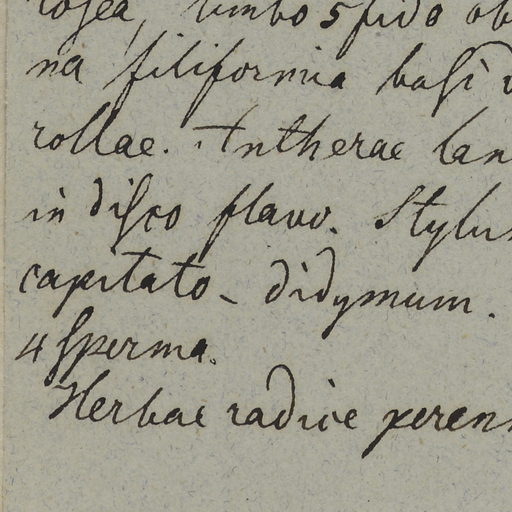 rosea, limbo 5fido ob
na filiformia basi
rollae. Antherae lan
in disco flavo. Stylus
capitato-didymum.
4sperma.
Herbae radice perenn